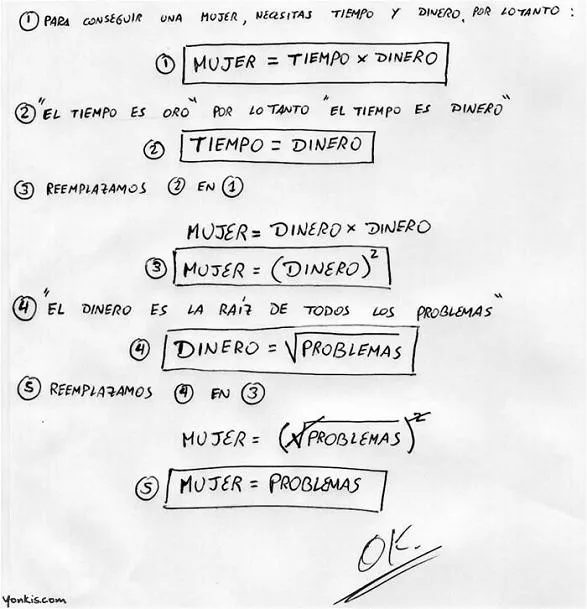 ① PARA CONSEGUIR UNA MUJER, NECESITAS TIEMPO Y DINERO, POR LO TANTO :
① MUJER = TIEMPO × DINERO
② "EL TIEMPO ES ORO" POR LO TANTO "EL TIEMPO ES DINERO"
② TIEMPO = DINERO
③ REEMPLAZAMOS ② EN ①
MUJER = DINERO × DINERO
③ MUJER = (DINERO)²
④ "EL DINERO ES LA RAÍZ DE TODOS LOS PROBLEMAS"
④ DINERO = √PROBLEMAS
⑤ REEMPLAZAMOS ④ EN ③
MUJER = (√PROBLEMAS)²
⑤ MUJER = PROBLEMAS
OK.
yonkis.com